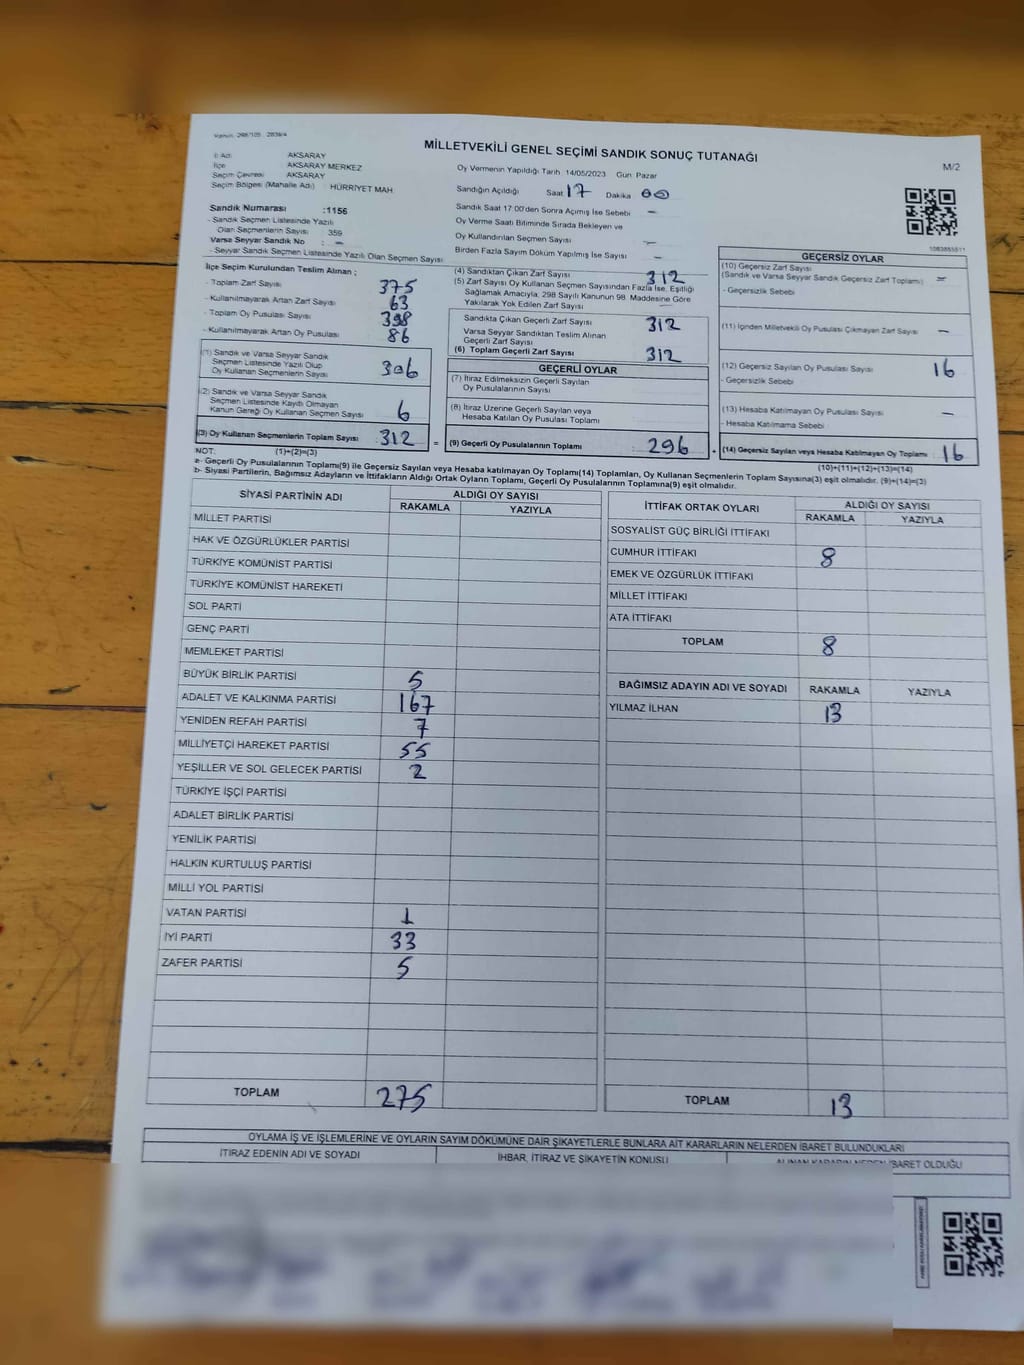 MİLLETVEKİLİ GENEL SEÇİMİ SANDIK SONUÇ TUTANAĞI
M/2
İl Adı AKSARAY
İlçe AKSARAY MERKEZ
Seçim Çevresi AKSARAY
Seçim Bölgesi (Mahalle Adı) HÜRRİYET MAH
Oy Vermenin Yapıldığı Tarih 14/05/2023 Gün Pazar
Sandığın Açıldığı Saat 17 Dakika 00
Sandık Numarası :1156
- Sandık Seçmen Listesinde Yazılı
Olan Seçmenlerin Sayısı 359
Varsa Seyyar Sandık No : -
- Seyyar Sandık Listesinde Yazılı Olan Seçmen Sayısı
Sandık Saat 17:00'den Sonra Açımış İse Sebebi -
Oy Verme Saati Bitiminde Sırada Bekleyen ve
Oy Kullandırılan Seçmen Sayısı -
Birden Fazla Sayım Döküm Yapılmış İse Sayısı -
İlçe Seçim Kurulundan Teslim Alınan ;
- Toplam Zarf Sayısı 375
- Kullanılmayarak Artan Zarf Sayısı 63
- Toplam Oy Pusulası Sayısı 398
- Kullanılmayarak Artan Oy Pusulası 86
(1) Sandık ve Varsa Seyyar Sandık
Seçmen Listesinde Yazılı Olup
Oy Kullanan Seçmenlerin Sayısı 306
(2) Sandık ve Varsa Seyyar Sandık
Listesinde Kayıtlı Olmayan
Kanun Gereği Oy Kullanan Seçmen Sayısı 6
(3) Oy Kullanan Seçmenlerin Toplam Sayısı 312
(1)+(2)=(3)
(4) Sandıktan Çıkan Zarf Sayısı 312
(5) Zarf Sayısı Oy Kullanan Seçmen Sayısından Fazla İse, Eşitliği
Sağlamak Amacıyla, 298 Sayılı Kanunun 98. Maddesine Göre
Yakılarak Yok Edilen Zarf Sayısı
Sandıkta Çıkan Geçerli Zarf Sayısı 312
Varsa Seyyar Sandıktan Teslim Alınan
Geçerli Zarf Sayısı
(6) Toplam Geçerli Zarf Sayısı 312
GEÇERLİ OYLAR
(7) İtiraz Edilmeksizin Geçerli Sayılan
Oy Pusulalarının Sayısı
(8) İtiraz Üzerine Geçerli Sayılan veya
Hesaba Katılan Oy Pusulası Toplamı
= (9) Geçerli Oy Pusulalarının Toplamı 296
GEÇERSİZ OYLAR
(10) Geçersiz Zarf Sayısı
(Sandık ve Varsa Seyyar Sandık Geçersiz Zarf Toplamı) -
- Geçersizlik Sebebi
(11) İçinden Milletvekili Oy Pusulası Çıkmayan Zarf Sayısı -
(12) Geçersiz Sayılan Oy Pusulası Sayısı 16
- Geçersizlik Sebebi
(13) Hesaba Katılmayan Oy Pusulası Sayısı -
- Hesaba Katılmama Sebebi
+ (14) Geçersiz Sayılan veya Hesaba Katılmayan Oy Toplamı 16
(10)+(11)+(12)+(13)=(14)
NOT:
a- Geçerli Oy Pusulalarının Toplamı(9) ile Geçersiz Sayılan veya Hesaba katılmayan Oy Toplamı(14) Toplamları, Oy Kullanan Seçmenlerin Toplam Sayısına(3) eşit olmalıdır. (9)+(14)=(3)
b- Siyasi Partilerin, Bağımsız Adayların ve İttifakların Aldığı Ortak Oyların Toplamı, Geçerli Oy Pusulalarının Toplamına(9) eşit olmalıdır.
SİYASİ PARTİNİN ADI ALDIĞI OY SAYISI
RAKAMLA YAZIYLA
MİLLET PARTİSİ
HAK VE ÖZGÜRLÜKLER PARTİSİ
TÜRKİYE KOMÜNİST PARTİSİ
TÜRKİYE KOMÜNİST HAREKETİ
SOL PARTİ
GENÇ PARTİ
MEMLEKET PARTİSİ
BÜYÜK BİRLİK PARTİSİ 5
ADALET VE KALKINMA PARTİSİ 167
YENİDEN REFAH PARTİSİ 7
MİLLİYETÇİ HAREKET PARTİSİ 55
YEŞİLLER VE SOL GELECEK PARTİSİ 2
TÜRKİYE İŞÇİ PARTİSİ
ADALET BİRLİK PARTİSİ
YENİLİK PARTİSİ
HALKIN KURTULUŞ PARTİSİ
MİLLİ YOL PARTİSİ
VATAN PARTİSİ 1
İYİ PARTİ 33
ZAFER PARTİSİ 5
TOPLAM 275
İTTİFAK ORTAK OYLARI ALDIĞI OY SAYISI
RAKAMLA YAZIYLA
SOSYALİST GÜÇ BİRLİĞİ İTTİFAKI
CUMHUR İTTİFAKI 8
EMEK VE ÖZGÜRLÜK İTTİFAKI
MİLLET İTTİFAKI
ATA İTTİFAKI
TOPLAM 8
BAĞIMSIZ ADAYIN ADI VE SOYADI RAKAMLA YAZIYLA
YILMAZ İLHAN 13
TOPLAM 13
OYLAMA İŞ VE İŞLEMLERİNE VE OYLARIN SAYIM DÖKÜMÜNE DAİR ŞİKAYETLERLE BUNLARA AİT KARARLARIN NELERDEN İBARET BULUNDUKLARI
İTİRAZ EDENİN ADI VE SOYADI İHBAR, İTİRAZ VE ŞİKAYETİN KONUSU ALINAN KARARIN NEDEN İBARET OLDUĞU